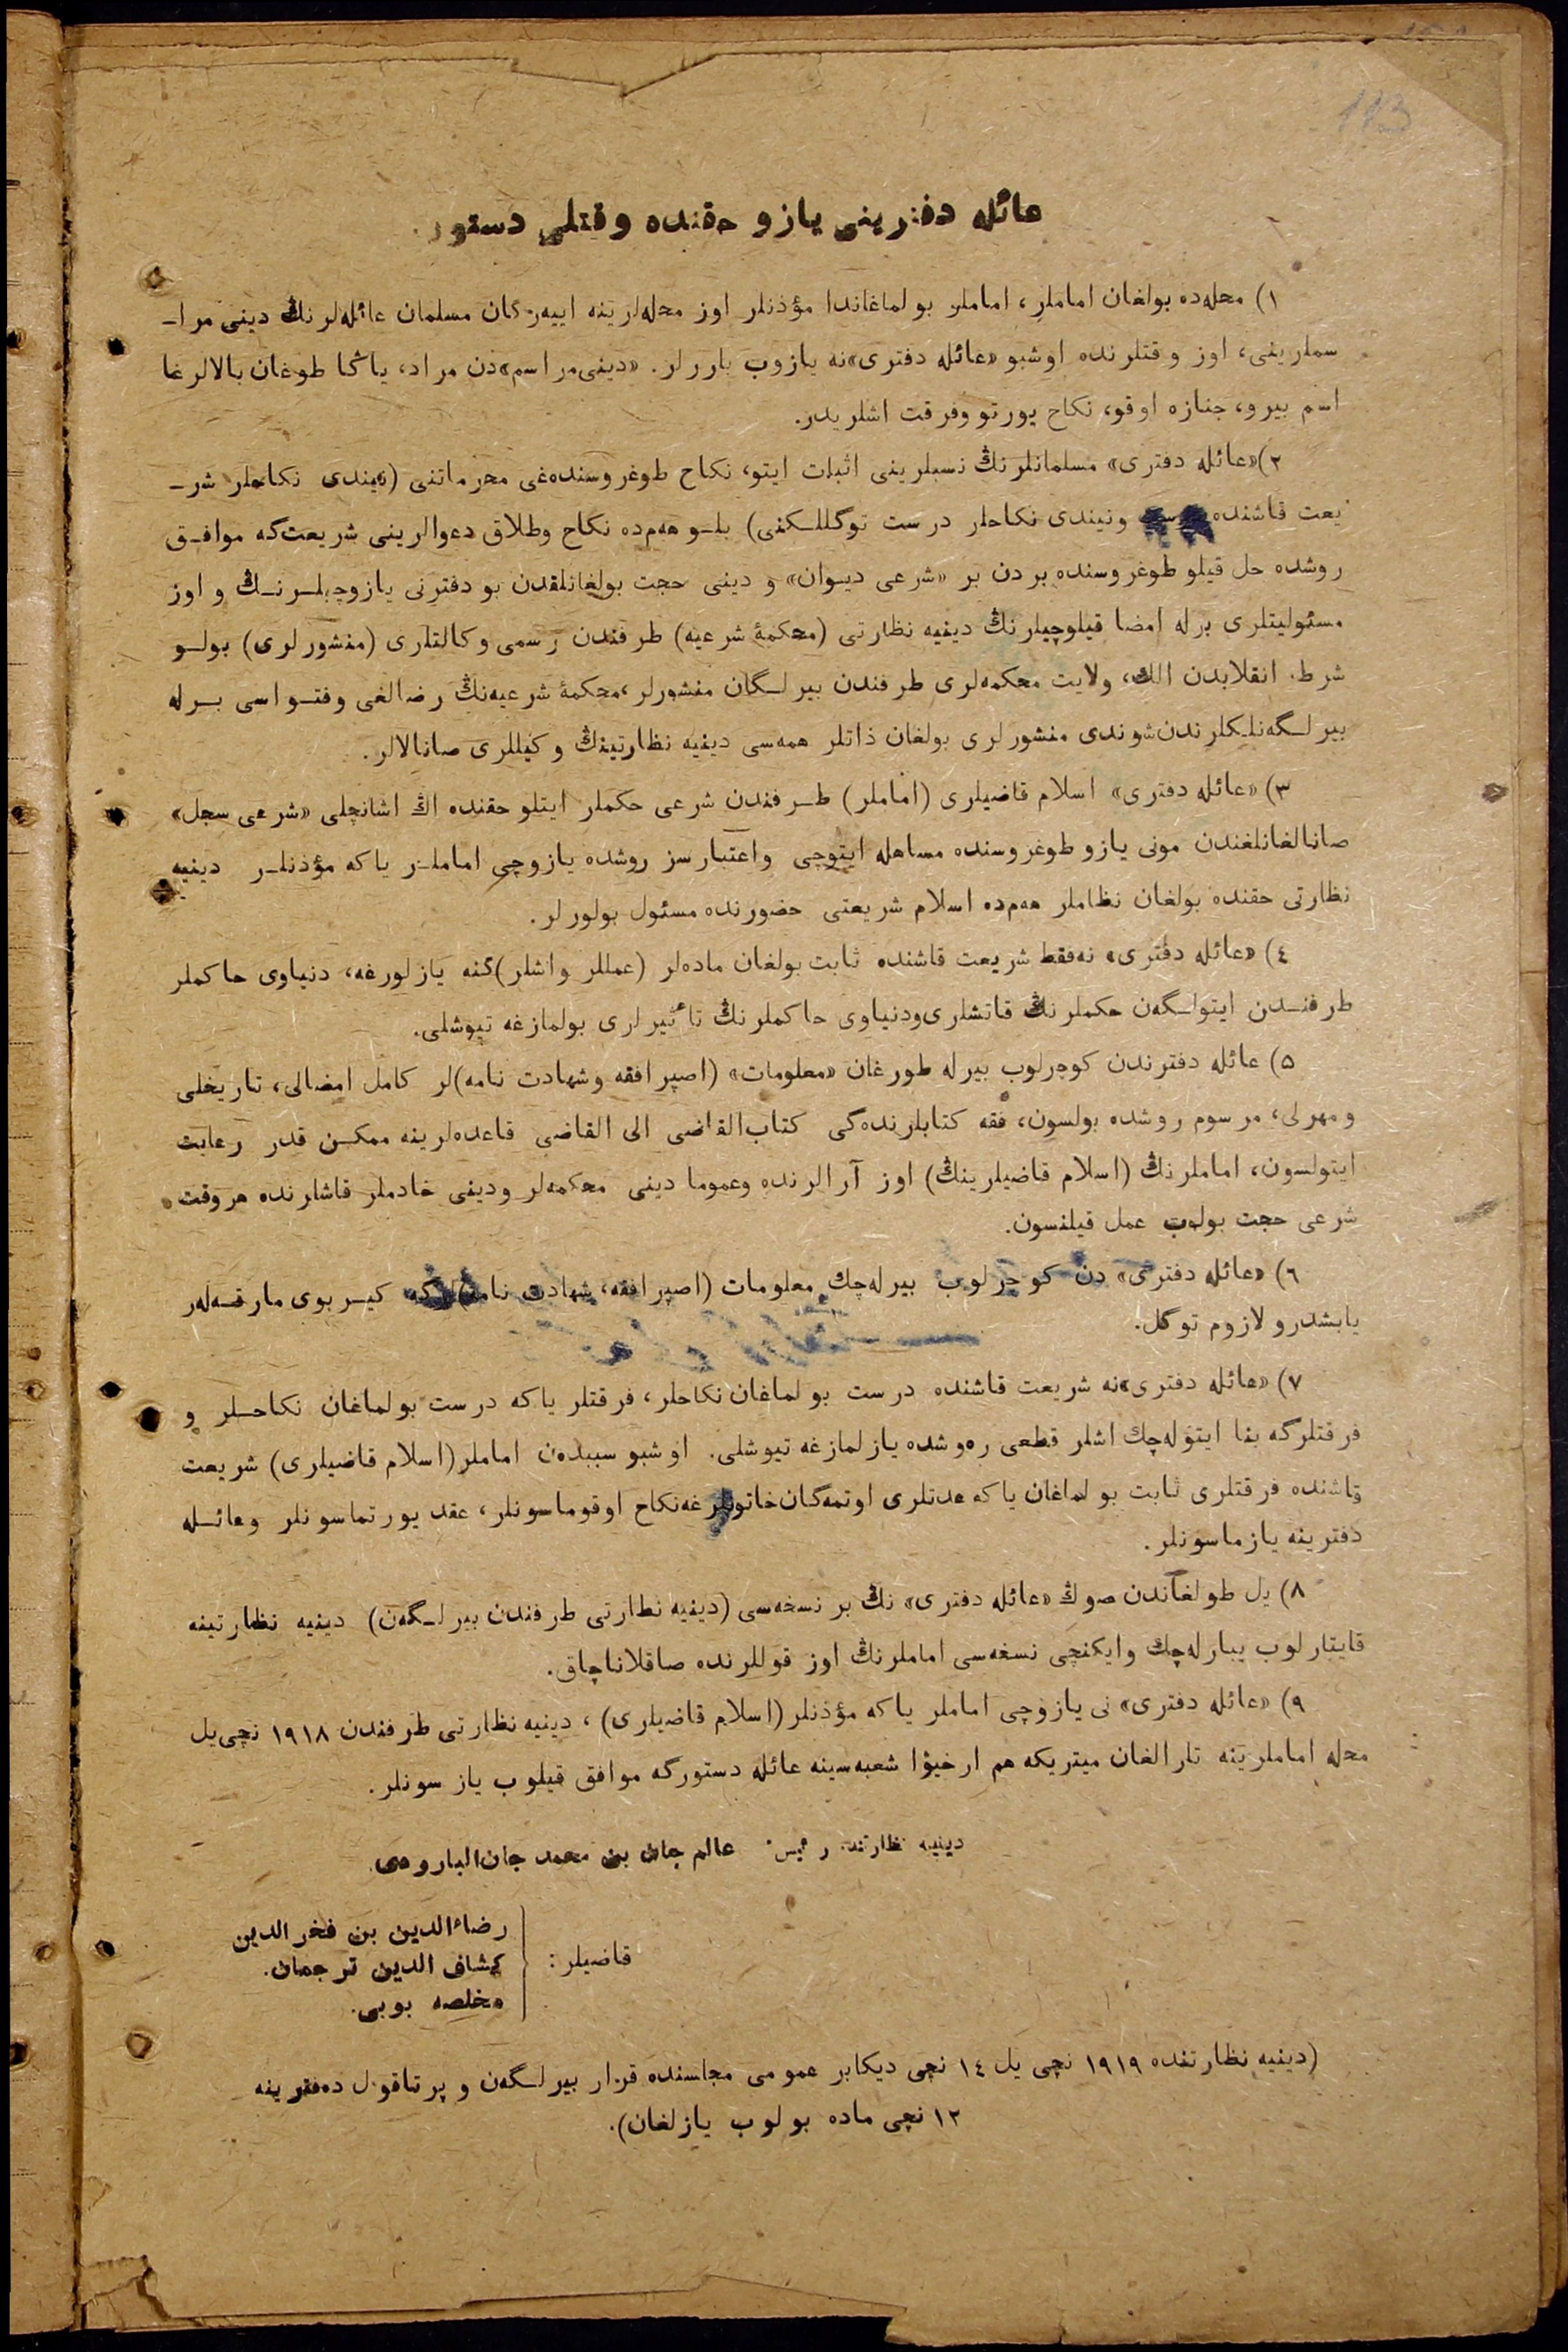 113
عائله دفترینی یازو حقنده وقتلی دستور.
١) محله‌ده بولغان اماملر، اماملر بولماغاندا مؤذنلر اوز محله‌لرینه اییه‌رگان مسلمان عائله‌لرنڭ دینی مرا‍ـ
سملرینی، اوز وقتلرنده اوشبو «عائله دفتری»نه یازوب باررلر. «دینی مراسم»دن مراد، یاڭا طوغان بالالرغا
اسم بیرو، جنازه اوقو، نکاح یورتو وفرقت اشلریدر.
٢) «عائله دفتری» مسلمانلرنڭ نسبلرینی اثبات ایتو، نکاح طوغروسنده‌غی محرماتنی (نیندی نکاحلر شر‍ـ
یعت قاشنده ونیندی نکاحلر درست توگللـکنی) بلـو هه‌م‌ده نکاح وطلاق دعوالرینی شریعت‌گه موافـق
روشده حل قیلو طوغروسنده بردن بر «شرعی دیـوان» و دینی حجت بولغانلقدن بو دفترنی یازوچیلـرنـڭ و اوز
مسئولیتلری برله امضا قیلوچیلرنڭ دینیه نظارتی (محکمهٔ شرعیه) طرفندن رسمی وکالتلری (منشورلری) بولـو
شرط. انقلابدن الڭ، ولایت محکمه‌لری طرفندن بیرلـگان منشورلر، محکمهٔ شرعیه‌نڭ رضالغی وفتـواسی بـرله
بیرلـگه‌نلکلرندن شوندی منشورلری بولغان ذاتلر همه‌سی دینیه نظارتینڭ وکیللری صانالالر.
٣) «عائله دفتری» اسلام قاضیلری (اماملر) طـرفندن شرعی حکملر ایتلو حقنده اڭ اشانچلی «شرعی سجل»
صانالغانلغندن مونی یازو طوغروسنده مساهله ایتوچی واعتبارسز روشده یازوچی اماملـر یاکه مؤذنلـر دینیه
نظارتی حقنده بولغان نظاملر هه‌م‌ده اسلام شریعتی حضورنده مسئول بولورلر.
٤) «عائله دفتری» نه‌فقط شریعت قاشنده ثابت بولغان ماده‌لر (عمللر واشلر)گنه یازلورغه، دنیاوی حاکملر
طرفنـدن ایتولـگه‌ن حکملرنڭ قاتشلری‌ودنیاوی حاکملرنڭ تأثیرلری بولمازغه تیوشلی.
٥) عائله دفترندن کوچرلوب بیرله طورغان «معلومات» (اصپرافقه وشهادت نامه)لر کامل امضالی، تاریخلی
ومهرلی، مرسوم روشده بولسون، فقه کتابلرنده‌گی کتاب‌القاضی الی القاضی قاعده‌لرینه ممکـن قدر رعایت
ایتولسون، اماملرنڭ (اسلام قاضیلرینڭ) اوز آرالرنده وعموما دینی محکمه‌لر ودینی خادملر قاشلرنده هروقت
شرعی حجت بولوب عمل قیلنسون.
٦) «عائله دفتری» دن کوچرلوب بیرله‌چك معلومات (اصپرافقه، شهادت نامه)لرگه کیـربوی مارقـه‌لەر
یابشدرو لازوم توگل.
٧) «عائله دفتری»نه شریعت قاشنده درست بولماغان نکاحلر، فرقتلر یاکه درست بولماغان نکاحـلر و
فرقتلرگه بنا ایتوله‌چك اشلر قطعی ره‌وشده یازلمازغه تیوشلی. اوشبو سببدەن اماملر (اسلام قاضیلری) شریعت
قاشنده فرقتلری ثابت بولماغان یاکه عدتلری اوتمه‌گان‌خاتونلرغه‌نکاح اوقوماسونلر، عقد یورتماسونلر وعائـله
دفترینه یازماسونلر.
٨) یل طولغاندن صوڭ «عائله دفتری» نڭ بر نسخه‌سی (دینیه نظارتی طرفندن بیرلـگه‌ن) دینیه نظارتینه
قایتارلوب یبارله‌چك وایکنچی نسخه‌سی اماملرنڭ اوز قوللرنده صاقلاناچاق.
٩) «عائله دفتری» نی یازوچی اماملر یاکه مؤذنلر (اسلام قاضیلری)، دینیه نظارتی طرفندن ١٩١٨ نچی یل
محله اماملرینه تارالغان میتریکه هم ارخیوا شعبه‌سینه عائله دستورگه موافق قیلوب یازسونلر.
دینیه نظارتنده رئیس عالم جان بن محمد جان البارودی.
قاضیلر:
رضاءالدین بن فخرالدین
کشاف الدین ترجمان.
مخلصه بوبی.
(دینیه نظارتنده ١٩١٩ نچی یل ١٤ نچی دیکابر عمومی مجلسنده قرار بیرلـگه‌ن و پرتاقول ده‌فترینه
١٢ نچی ماده بولوب یازلغان).